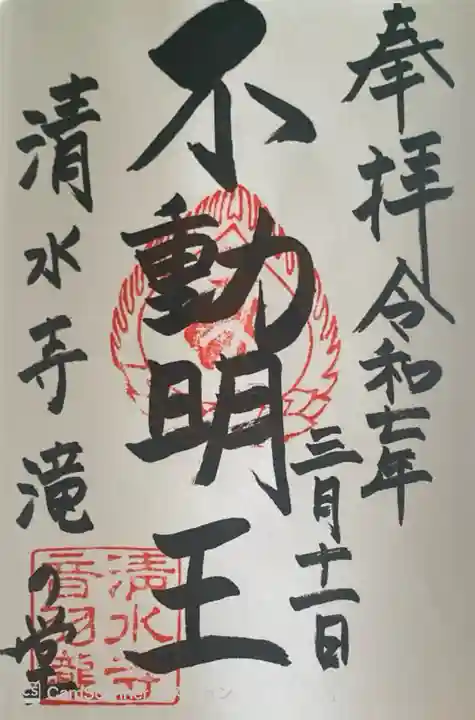 奉拝
令和七年
三月十一日
不動明王
清水寺滝の堂
清水寺
音羽瀧
CS CamScanner